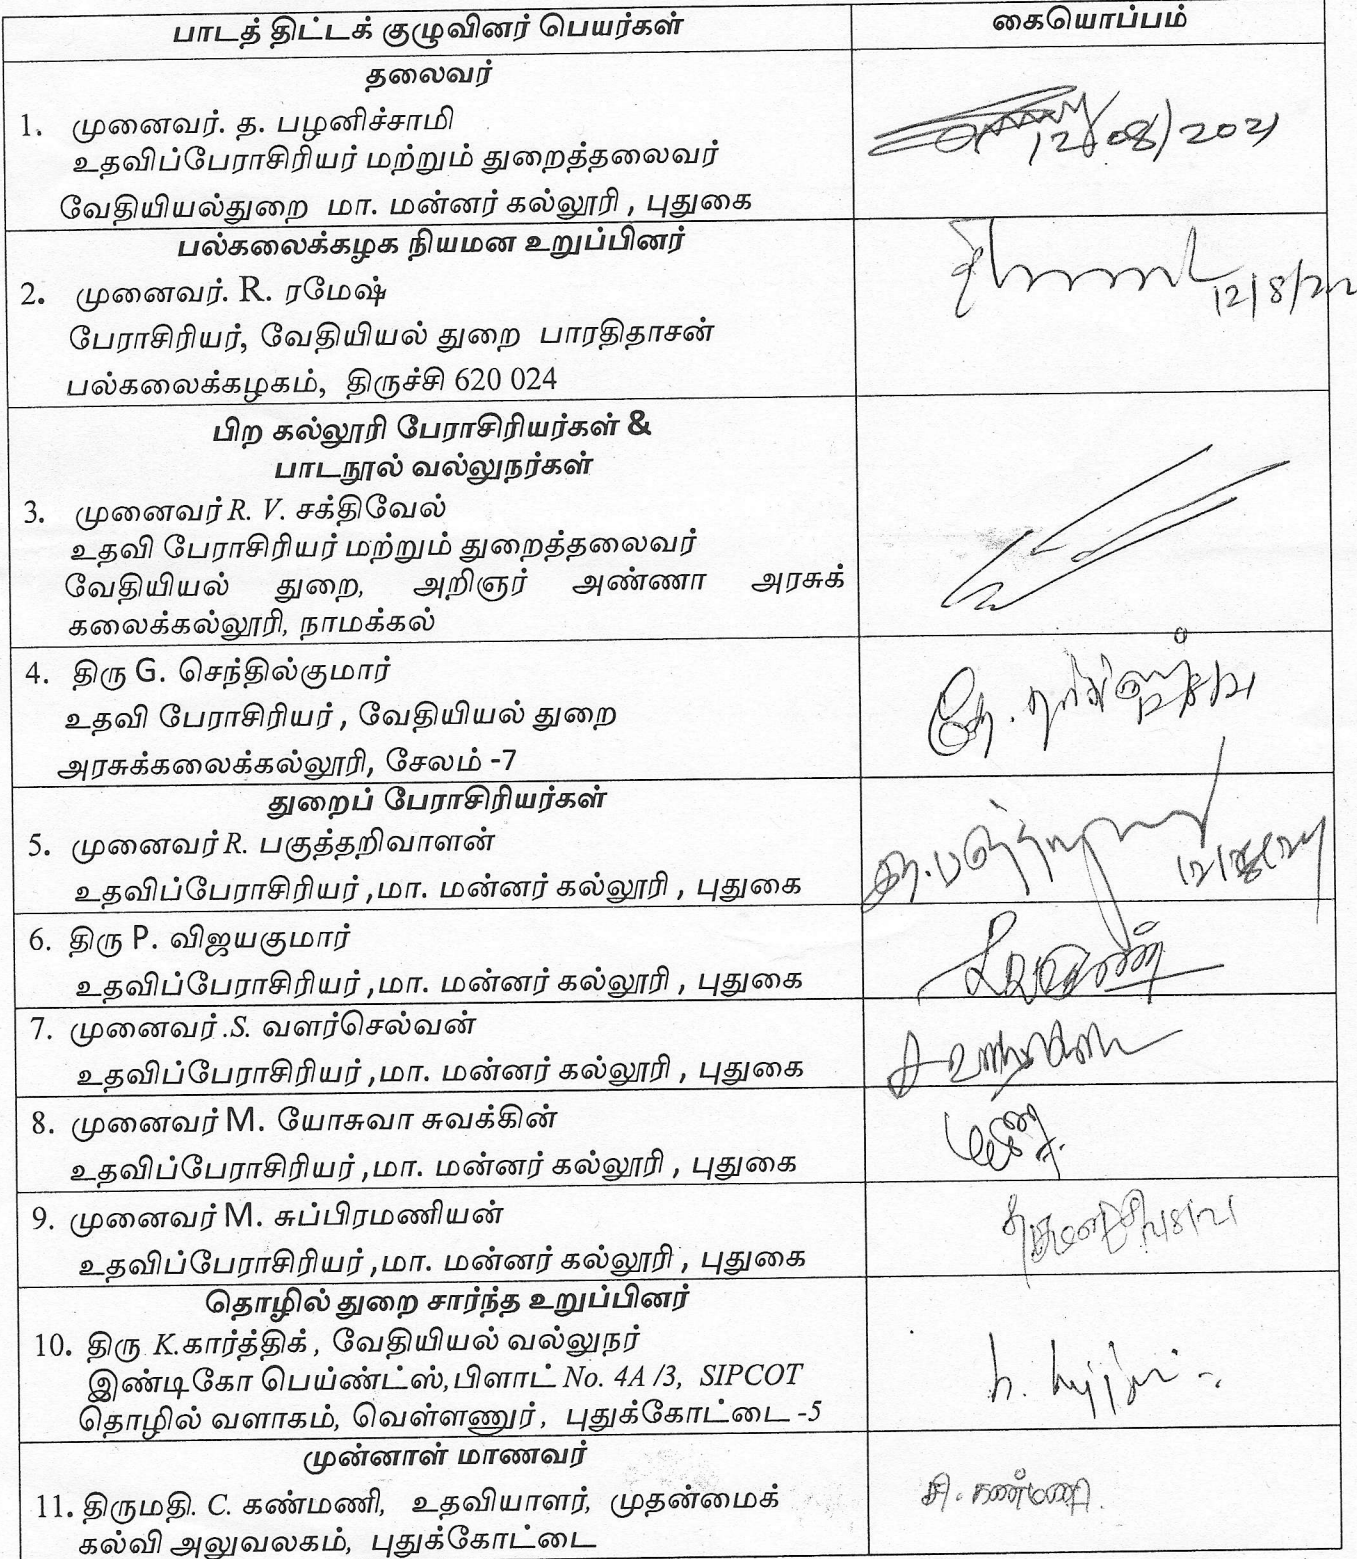 பாடத் திட்டக் குழுவினர் பெயர்கள் கையொப்பம்
தலைவர்
1. முனைவர். த. பழனிச்சாமி
உதவிப்பேராசிரியர் மற்றும் துறைத்தலைவர்
வேதியியல்துறை மா. மன்னர் கல்லூரி , புதுகை
12/08/2021
பல்கலைக்கழக நியமன உறுப்பினர்
2. முனைவர். R. ரமேஷ்
பேராசிரியர், வேதியியல் துறை பாரதிதாசன்
பல்கலைக்கழகம், திருச்சி 620 024
பிற கல்லூரி பேராசிரியர்கள் &
பாடநூல் வல்லுநர்கள்
3. முனைவர் R. V. சக்திவேல்
உதவி பேராசிரியர் மற்றும் துறைத்தலைவர்
வேதியியல் துறை, அறிஞர் அண்ணா அரசுக்
கலைக்கல்லூரி, நாமக்கல்
4. திரு G. செந்தில்குமார்
உதவி பேராசிரியர் , வேதியியல் துறை
அரசுக்கலைக்கல்லூரி, சேலம் -7
துறைப் பேராசிரியர்கள்
5. முனைவர் R. பகுத்தறிவாளன்
உதவிப்பேராசிரியர் ,மா. மன்னர் கல்லூரி , புதுகை
6. திரு P. விஜயகுமார்
உதவிப்பேராசிரியர் ,மா. மன்னர் கல்லூரி , புதுகை
7. முனைவர் .S. வளர்செல்வன்
உதவிப்பேராசிரியர் ,மா. மன்னர் கல்லூரி , புதுகை
8. முனைவர் M. யோசுவா சுவக்கின்
உதவிப்பேராசிரியர் ,மா. மன்னர் கல்லூரி , புதுகை
9. முனைவர் M. சுப்பிரமணியன்
உதவிப்பேராசிரியர் ,மா. மன்னர் கல்லூரி , புதுகை
தொழில் துறை சார்ந்த உறுப்பினர்
10. திரு K.கார்த்திக் , வேதியியல் வல்லுநர்
இண்டிகோ பெய்ண்ட்ஸ்,பிளாட் No. 4A /3, SIPCOT
தொழில் வளாகம், வெள்ளணுர் , புதுக்கோட்டை -5
முன்னாள் மாணவர்
11. திருமதி. C. கண்மணி, உதவியாளர், முதன்மைக்
கல்வி அலுவலகம், புதுக்கோட்டை
சி. கண்மணி